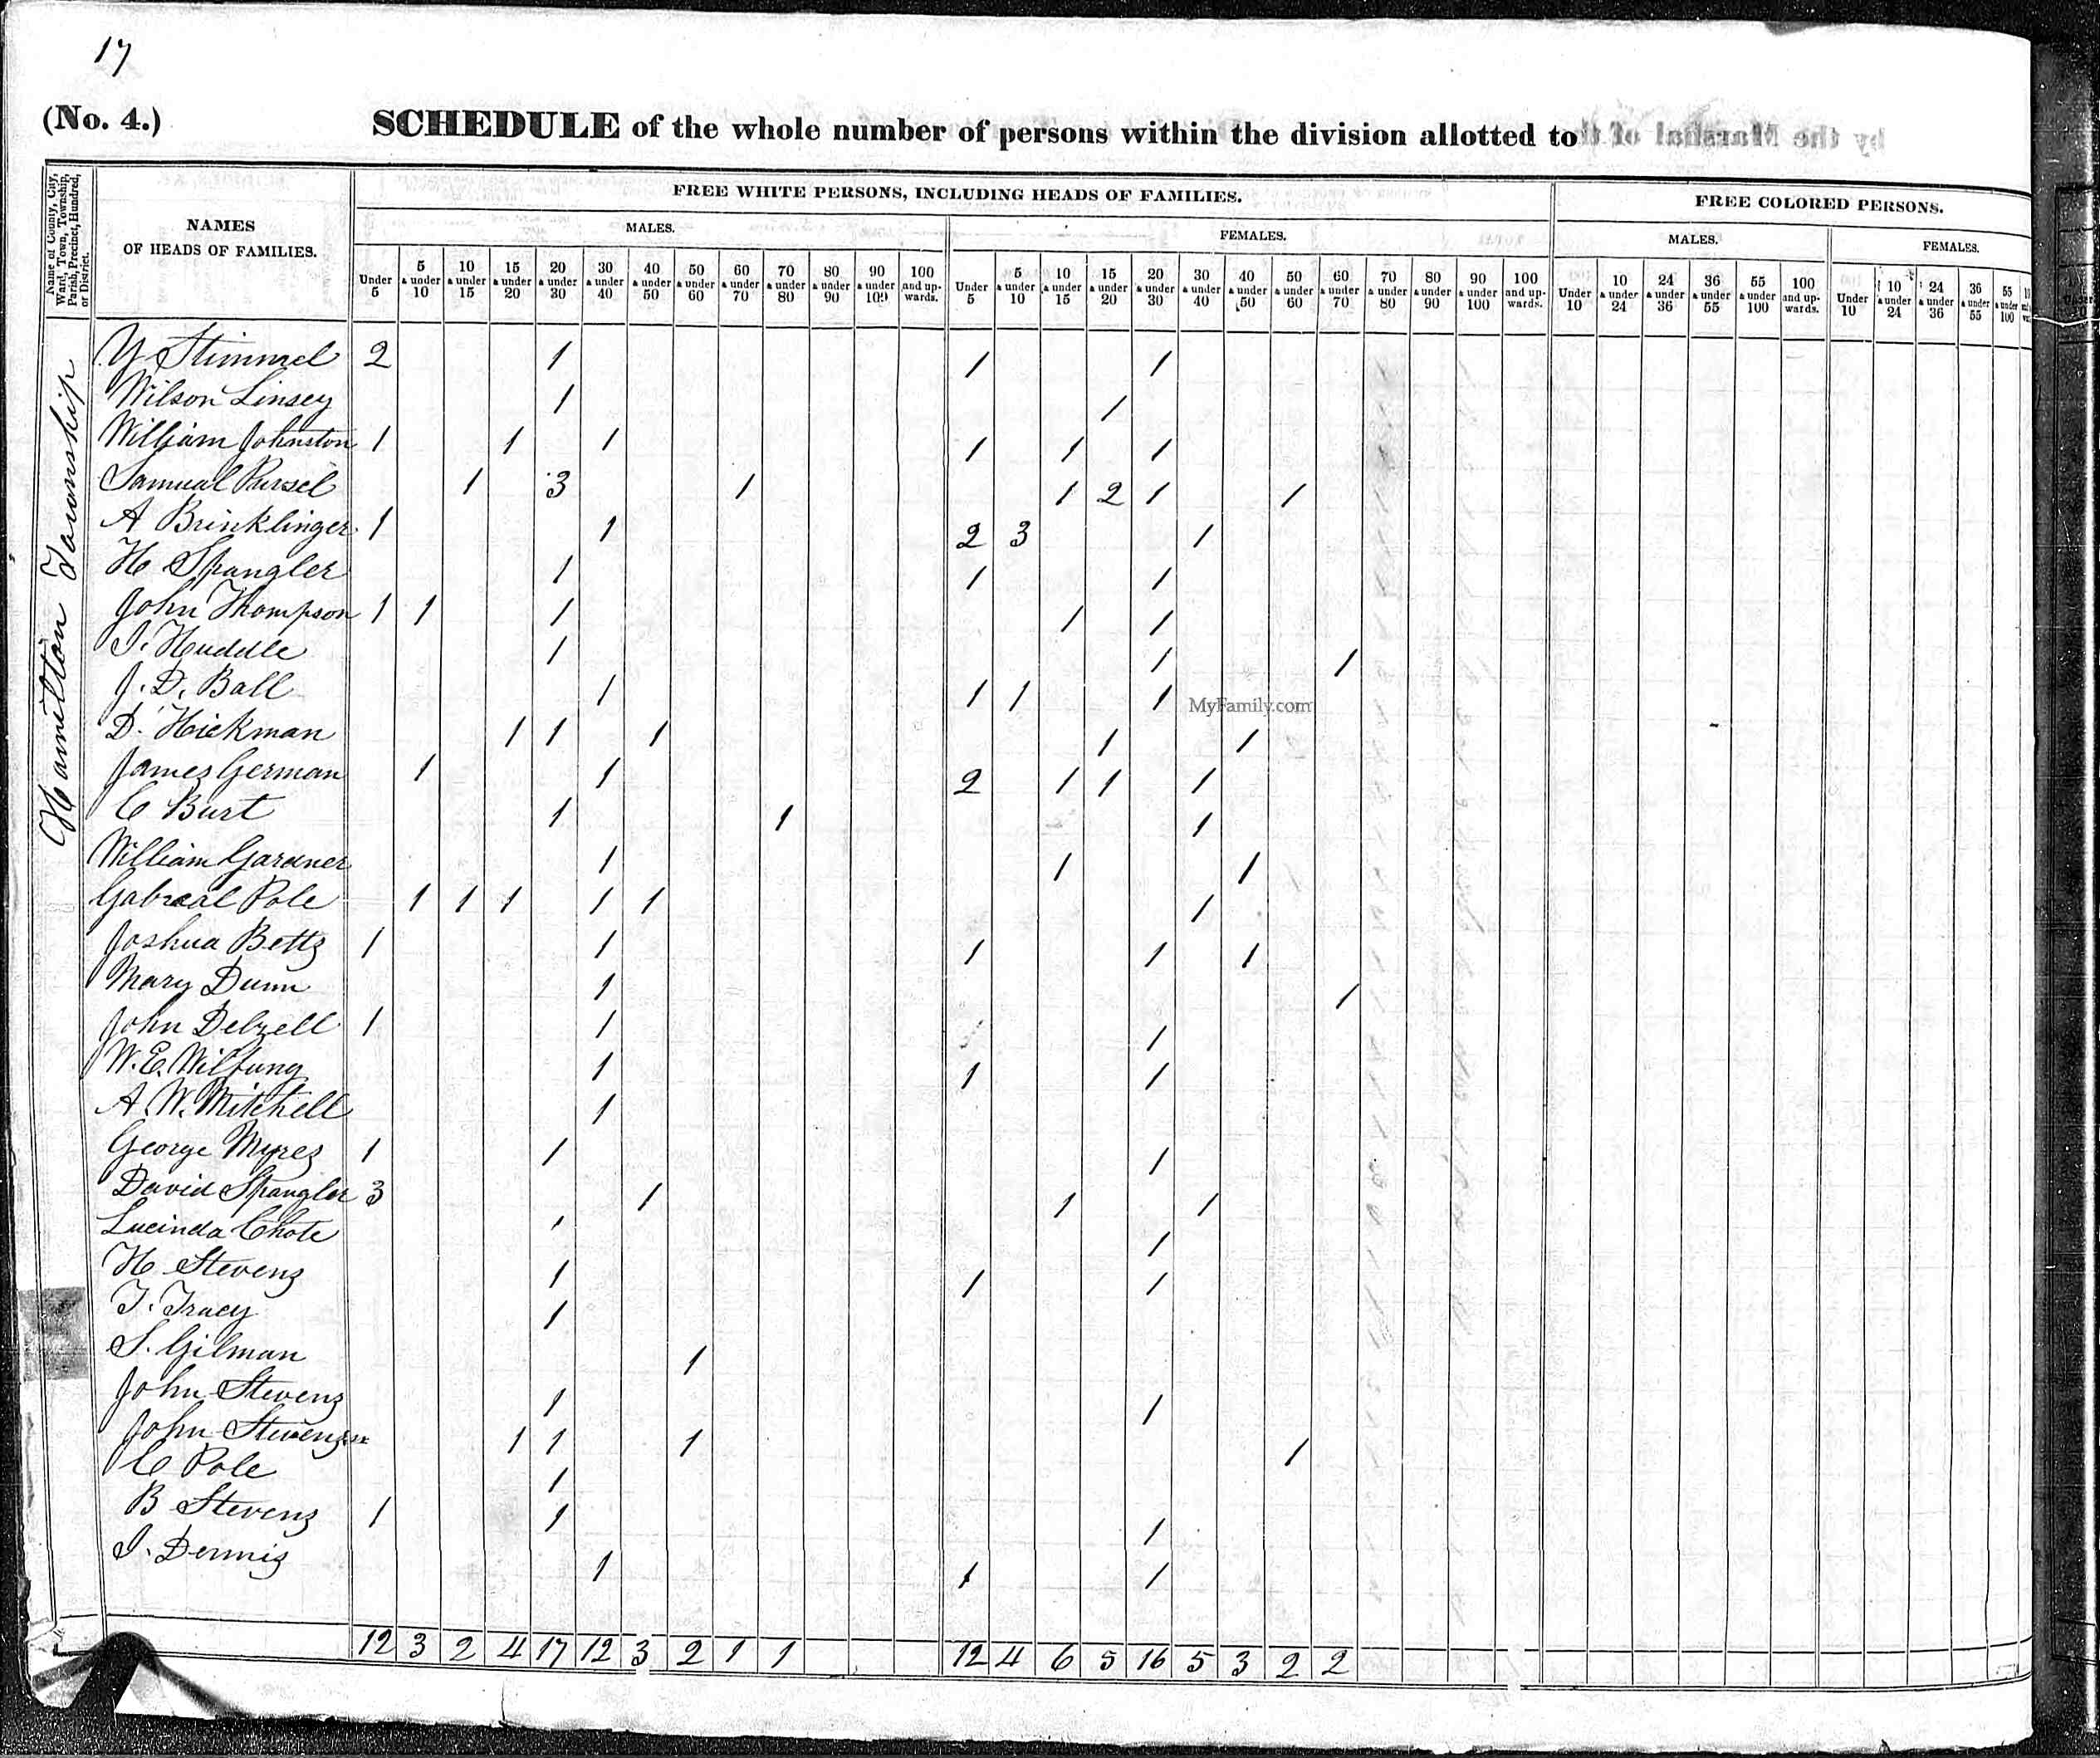 17
(No. 4.) SCHEDULE of the whole number of persons within the division allotted to by the Marshal of th
Name of County, City, Ward, Town, Township, Parish, Precinct, Hundred, or District.
NAMES OF HEADS OF FAMILIES.
FREE WHITE PERSONS, INCLUDING HEADS OF FAMILIES.
FREE COLORED PERSONS.
MALES. FEMALES. MALES. FEMALES.
Under 5 5 & under 10 10 & under 15 15 & under 20 20 & under 30 30 & under 40 40 & under 50 50 & under 60 60 & under 70 70 & under 80 80 & under 90 90 & under 100 100 and upwards. Under 5 5 & under 10 10 & under 15 15 & under 20 20 & under 30 30 & under 40 40 & under 50 50 & under 60 60 & under 70 70 & under 80 80 & under 90 90 & under 100 100 and upwards. Under 10 10 & under 24 24 & under 36 36 & under 55 55 & under 100 100 and upwards. Under 10 10 & under 24 24 & under 36 36 & under 55 55 & under 100
Hamilton Township
Y Stimmel 2 1 1 1
Wilson Linsey 1 1
William Johnston 1 1 1 1 1 1
Samual Pursel 1 3 1 1 2 1 1
A Brinklinger 1 1 2 3 1
H Spangler 1 1 1
John Thompson 1 1 1 1 1
I. Huddle 1 1 1
J. D. Ball 1 1 1 1
MyFamily.com
D. Hickman 1 1 1 1 1
James German 1 1 2 1 1 1
C Burt 1 1 1
William Gardner 1 1 1
Gabraal Pole 1 1 1 1 1 1
Joshua Betts 1 1 1 1 1
Mary Dunn 1 1
John Delzell 1 1 1
W. E. Wilfung 1 1 1
A. W. Mitchell 1
George Myres 1 1 1
David Spangler 3 1 1 1
Lucinda Chote 1 1
H Stevens 1 1 1
T. Tracy 1
S. Gilman 1
John Stevens 1 1
John Stevens sr 1 1 1 1
C Pole 1
B Stevens 1 1 1
I. Dennis 1 1 1
12 3 2 4 17 12 3 2 1 1 12 4 6 5 16 5 3 2 2